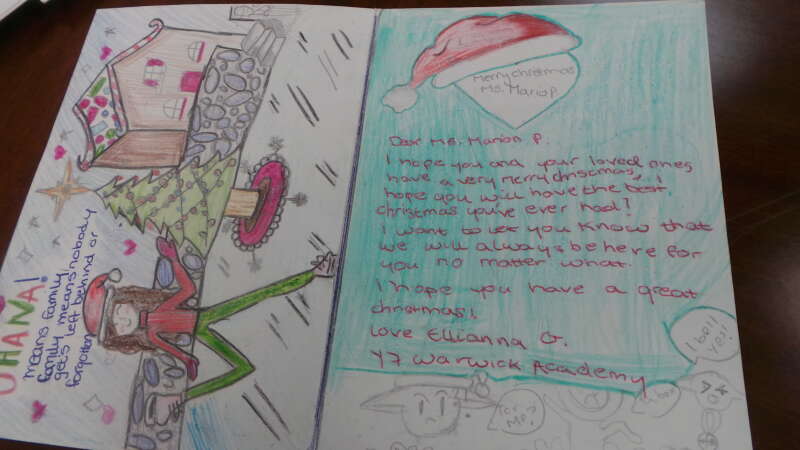 OHANA!
means family
family means nobody
gets left behind or
forgotten
Merry christmas
Ms. Marion P
Dear Ms. Marion P.
I hope you and your loved ones
have a very merry christmas, I
hope you will have the best
christmas you've ever had!
I want to let you know that
we will always be here for
you no matter what.
I hope you have a great
christmas!
Love Ellianna G.
Y7 Warwick Academy
for
Me?